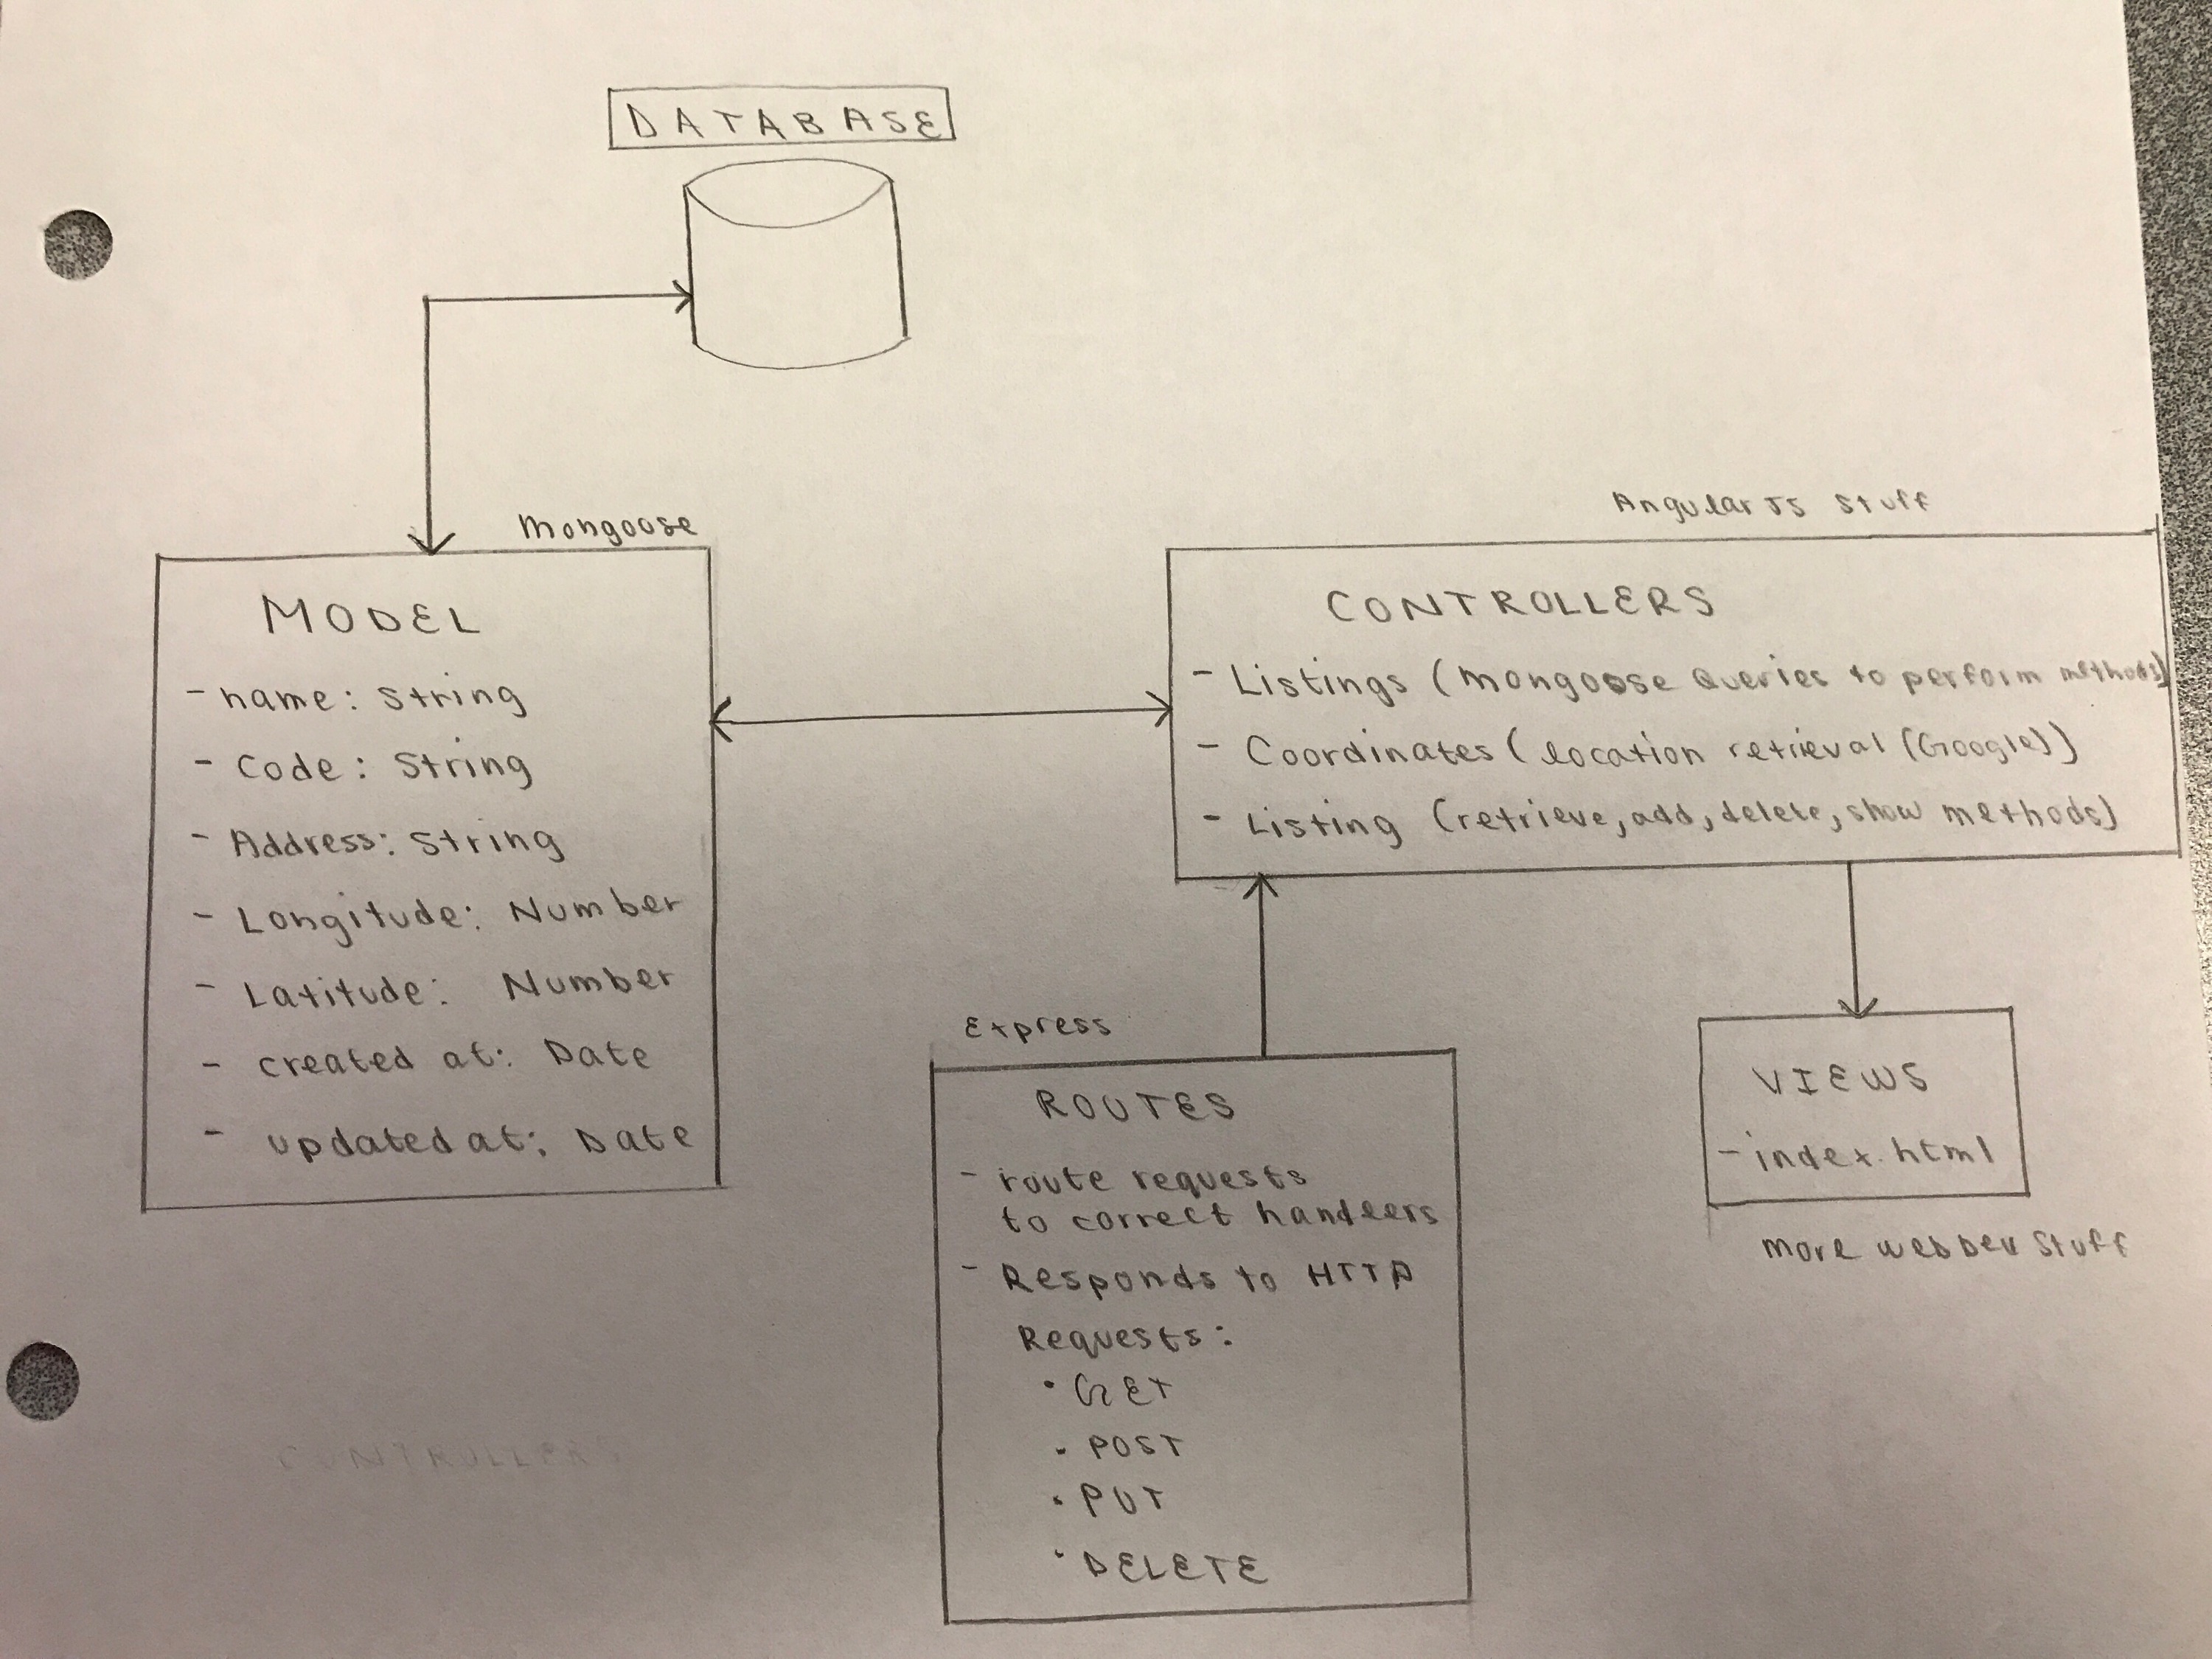 DATABASE
Mongoose
MODEL
- name: String
- Code: String
- Address: String
- Longitude: Number
- Latitude: Number
- created at: Date
- updated at: Date
Angular JS Stuff
CONTROLLERS
- Listings (mongoose Queries to perform methods)
- Coordinates (location retrieval (Google))
- Listing (retrieve, add, delete, show methods)
Express
ROUTES
- route requests
to correct handlers
- Responds to HTTP
Requests:
• GET
• POST
• PUT
• DELETE
VIEWS
- index.html
more web Dev Stuff
CONTROLLERS